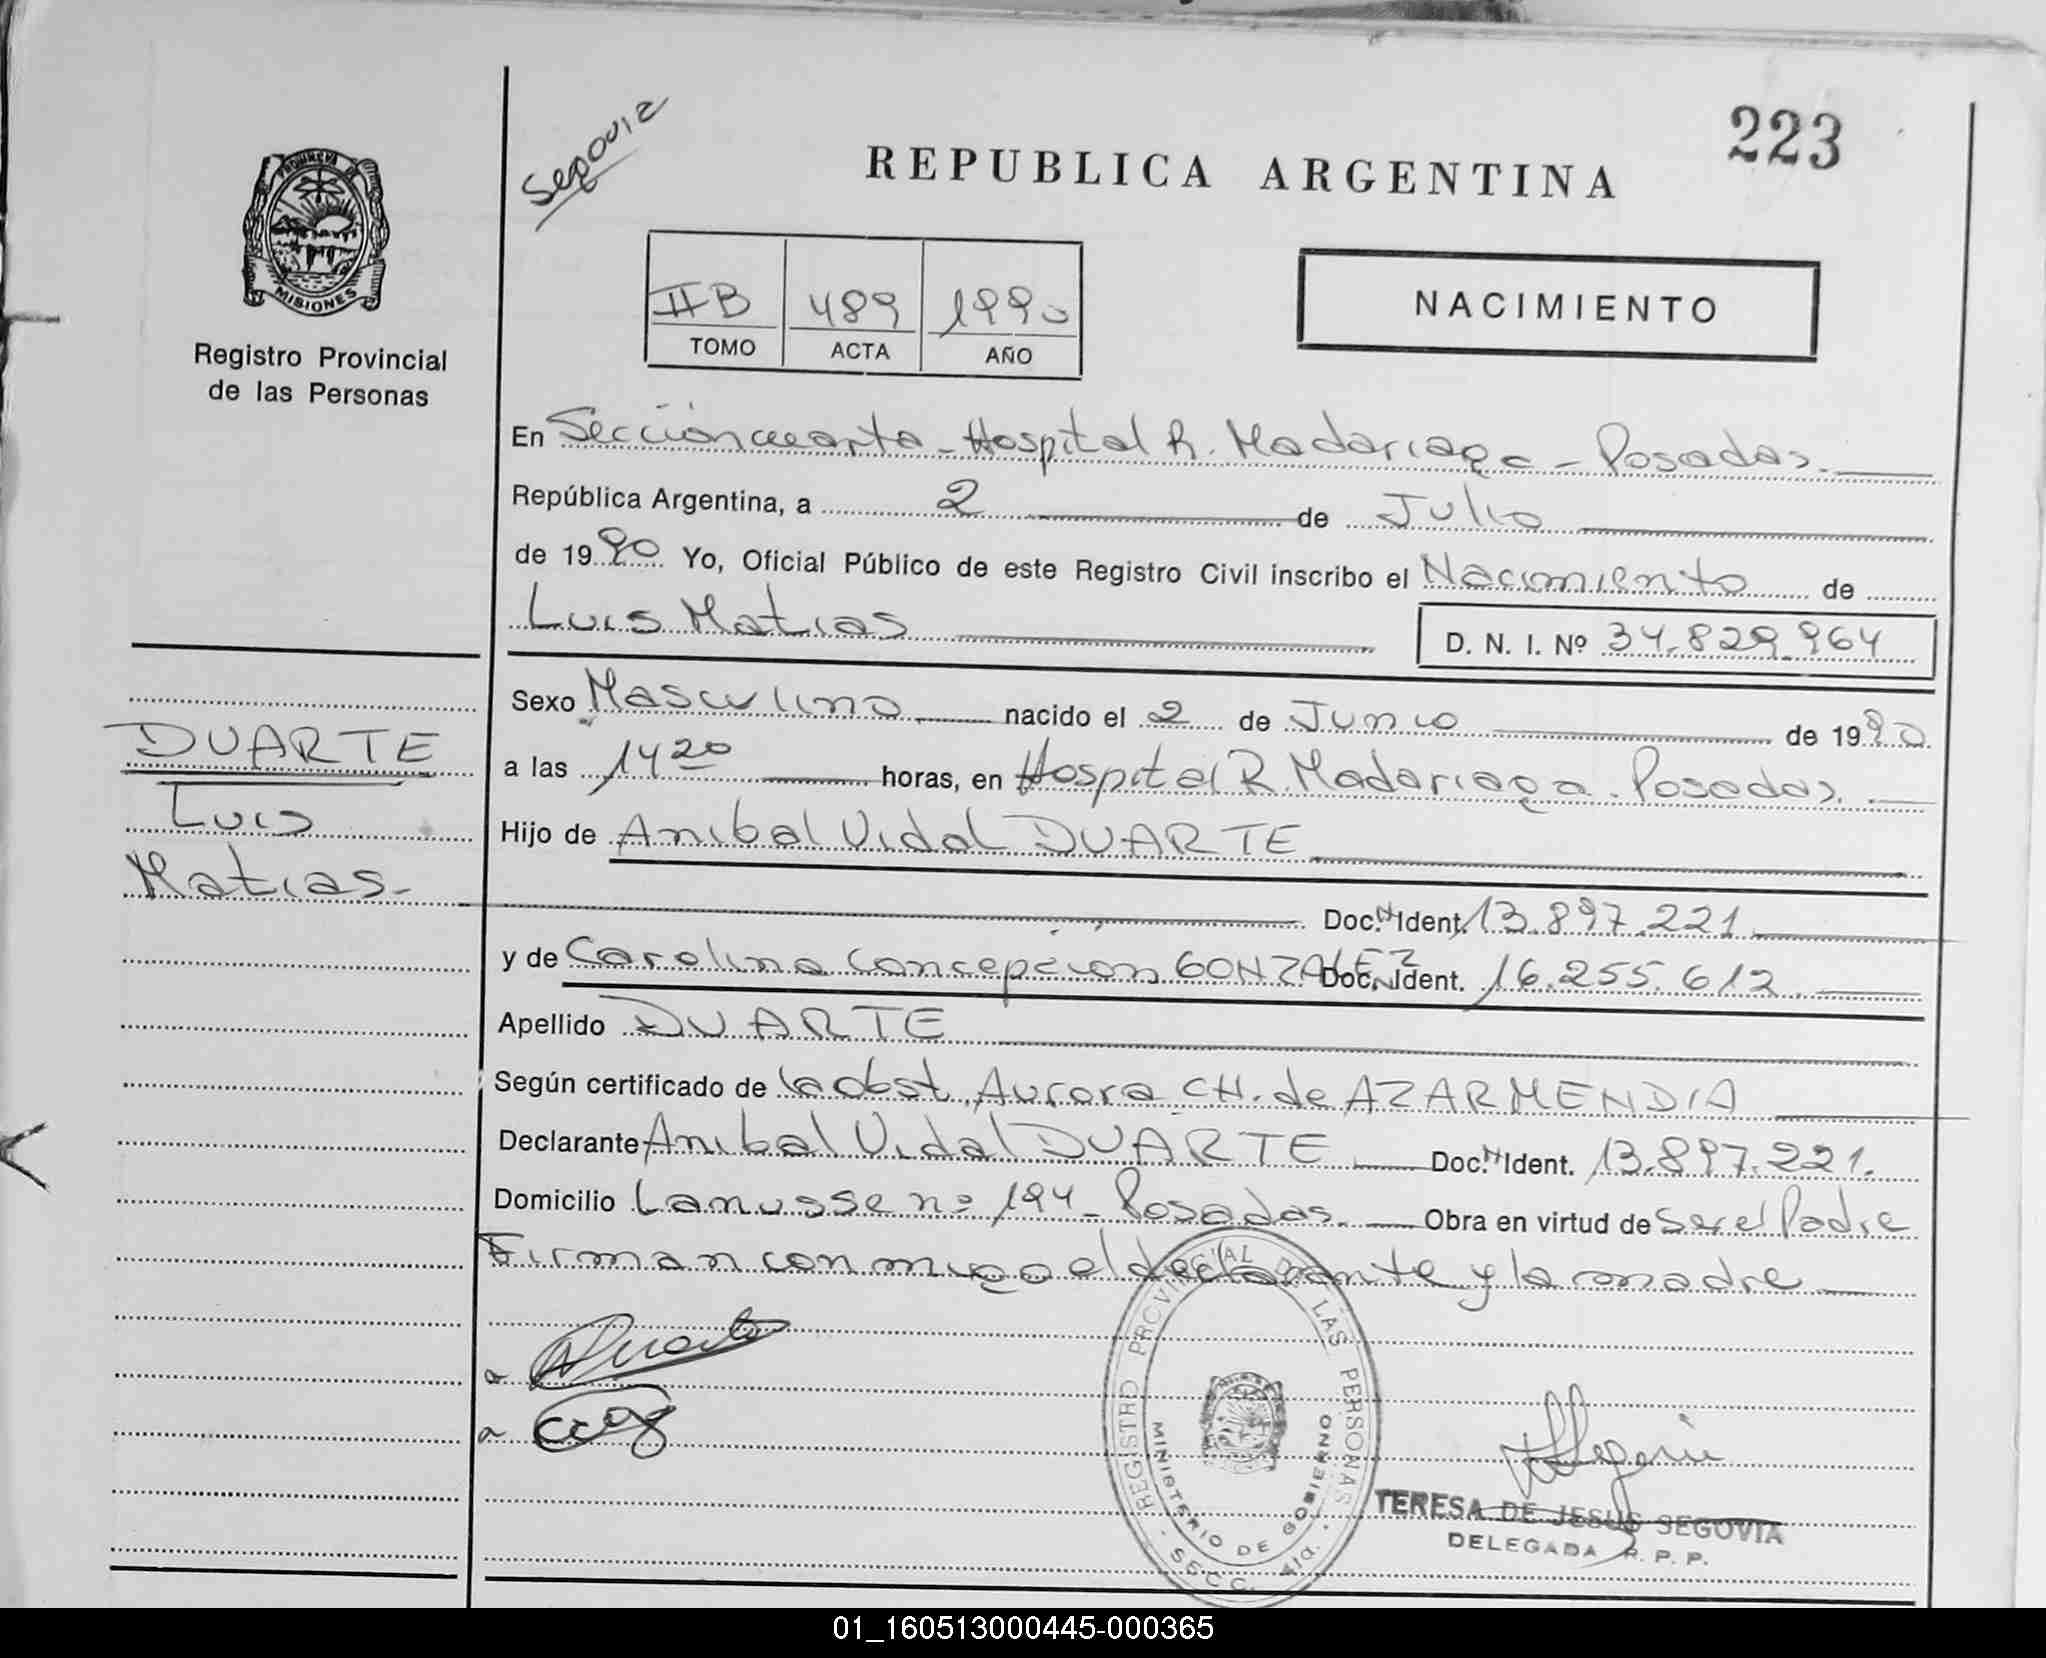 223
Segovia
REPUBLICA ARGENTINA
PROVINCIA DE MISIONES
Registro Provincial
de las Personas
IIB 489 1990
TOMO ACTA AÑO
NACIMIENTO
En Sección cuarta - Hospital R. Madariaga - Posadas.
República Argentina, a 2 de Julio
de 1990 Yo, Oficial Público de este Registro Civil inscribo el Nacimiento de
Luis Matias D. N. I. Nº 34.829.964
Sexo Masculino nacido el 2 de Junio de 1990
a las 14 20 horas, en Hospital R. Madariaga. Posadas.
Hijo de Anibal Vidal DUARTE
Doc. N. Ident. 13.897.221
y de Carolina Concepción GONZALEZ Doc. N. Ident. 16.255.612
Apellido DUARTE
Según certificado de la obst. Aurora CH. de AZARMENDIA
Declarante Anibal Vidal DUARTE Doc. N. Ident. 13.897.221.
Domicilio Lanusse nº 194 - Posadas. Obra en virtud de ser el Padre
Firman conmigo el declarante y la madre
DUARTE
Luis
Matias.-
a Duarte
a
REGISTRO PROVINCIAL DE LAS PERSONAS
MINISTERIO DE GOBIERNO
SECC. 4ta.
TERESA DE JESUS SEGOVIA
DELEGADA R. P. P.
01_160513000445-000365